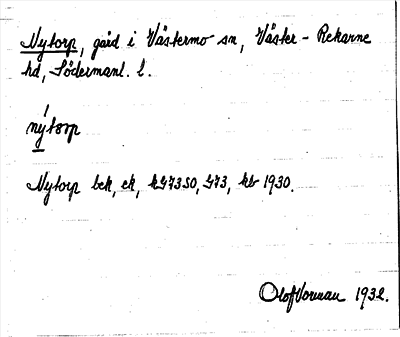 Nytorp, gård i Västermo sn, Väster-Rekarne
hd, Södermanl. l.
nýtorp
Nytorp bek, ek, kG7350, G73, kb 1930.
1932.